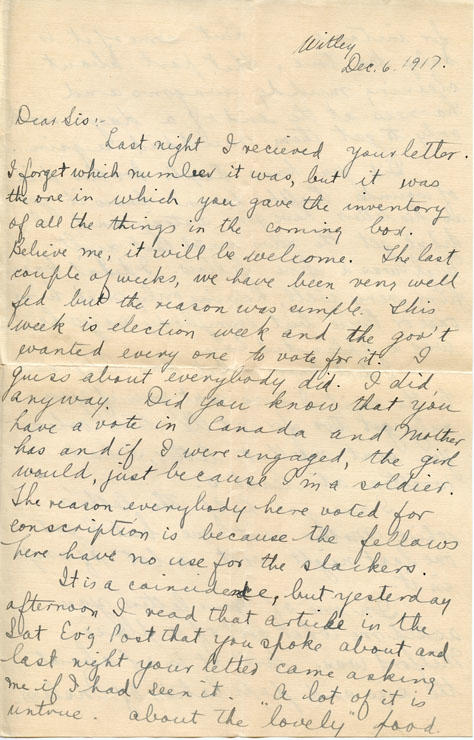 Witley
Dec. 6. 1917.
Dear Sis:-
Last night I recieved your letter.
I forget which number it was, but it was
the one in which you gave the inventory
of all the things in the coming box.
Believe me, it will be welcome. The last
couple of weeks, we have been very well
fed but the reason was simple. This
week is election week and the gov't
wanted every one to vote for it. I
guess about everybody did. I did
anyway. Did you know that you
have a vote in Canada and Mother
has and if I were engaged, the girl
would, just because I'm a soldier.
The reason everybody here voted for
conscription is because the fellows
here have no use for the slackers.
It is a coincidence, but yesterday
afternoon I read that article in the
Sat Ev'g Post that you spoke about and
last night your letter came asking
me if I had seen it. "A lot of it is
untrue. about the lovely" food